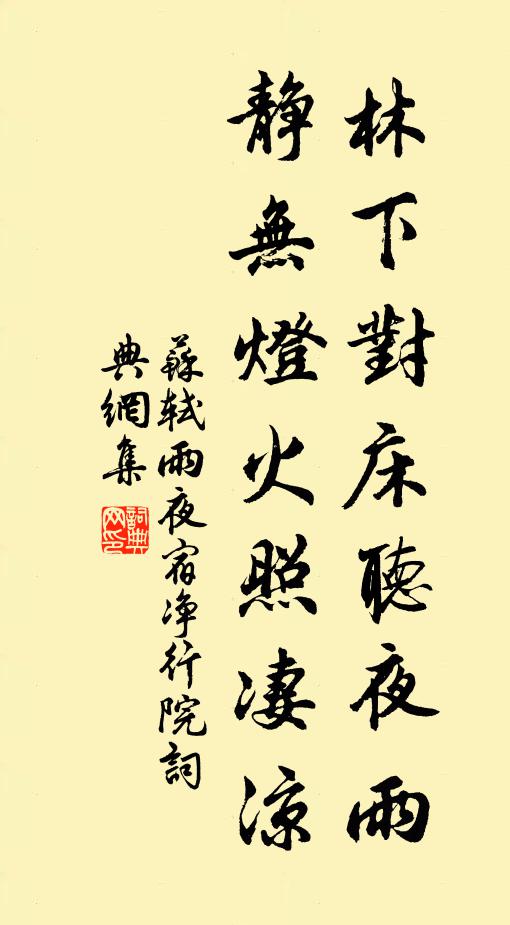 林下對床聽夜雨
靜無燈火照凄涼
蘇軾雨夜宿淨行院詞
典網集
詞典網印